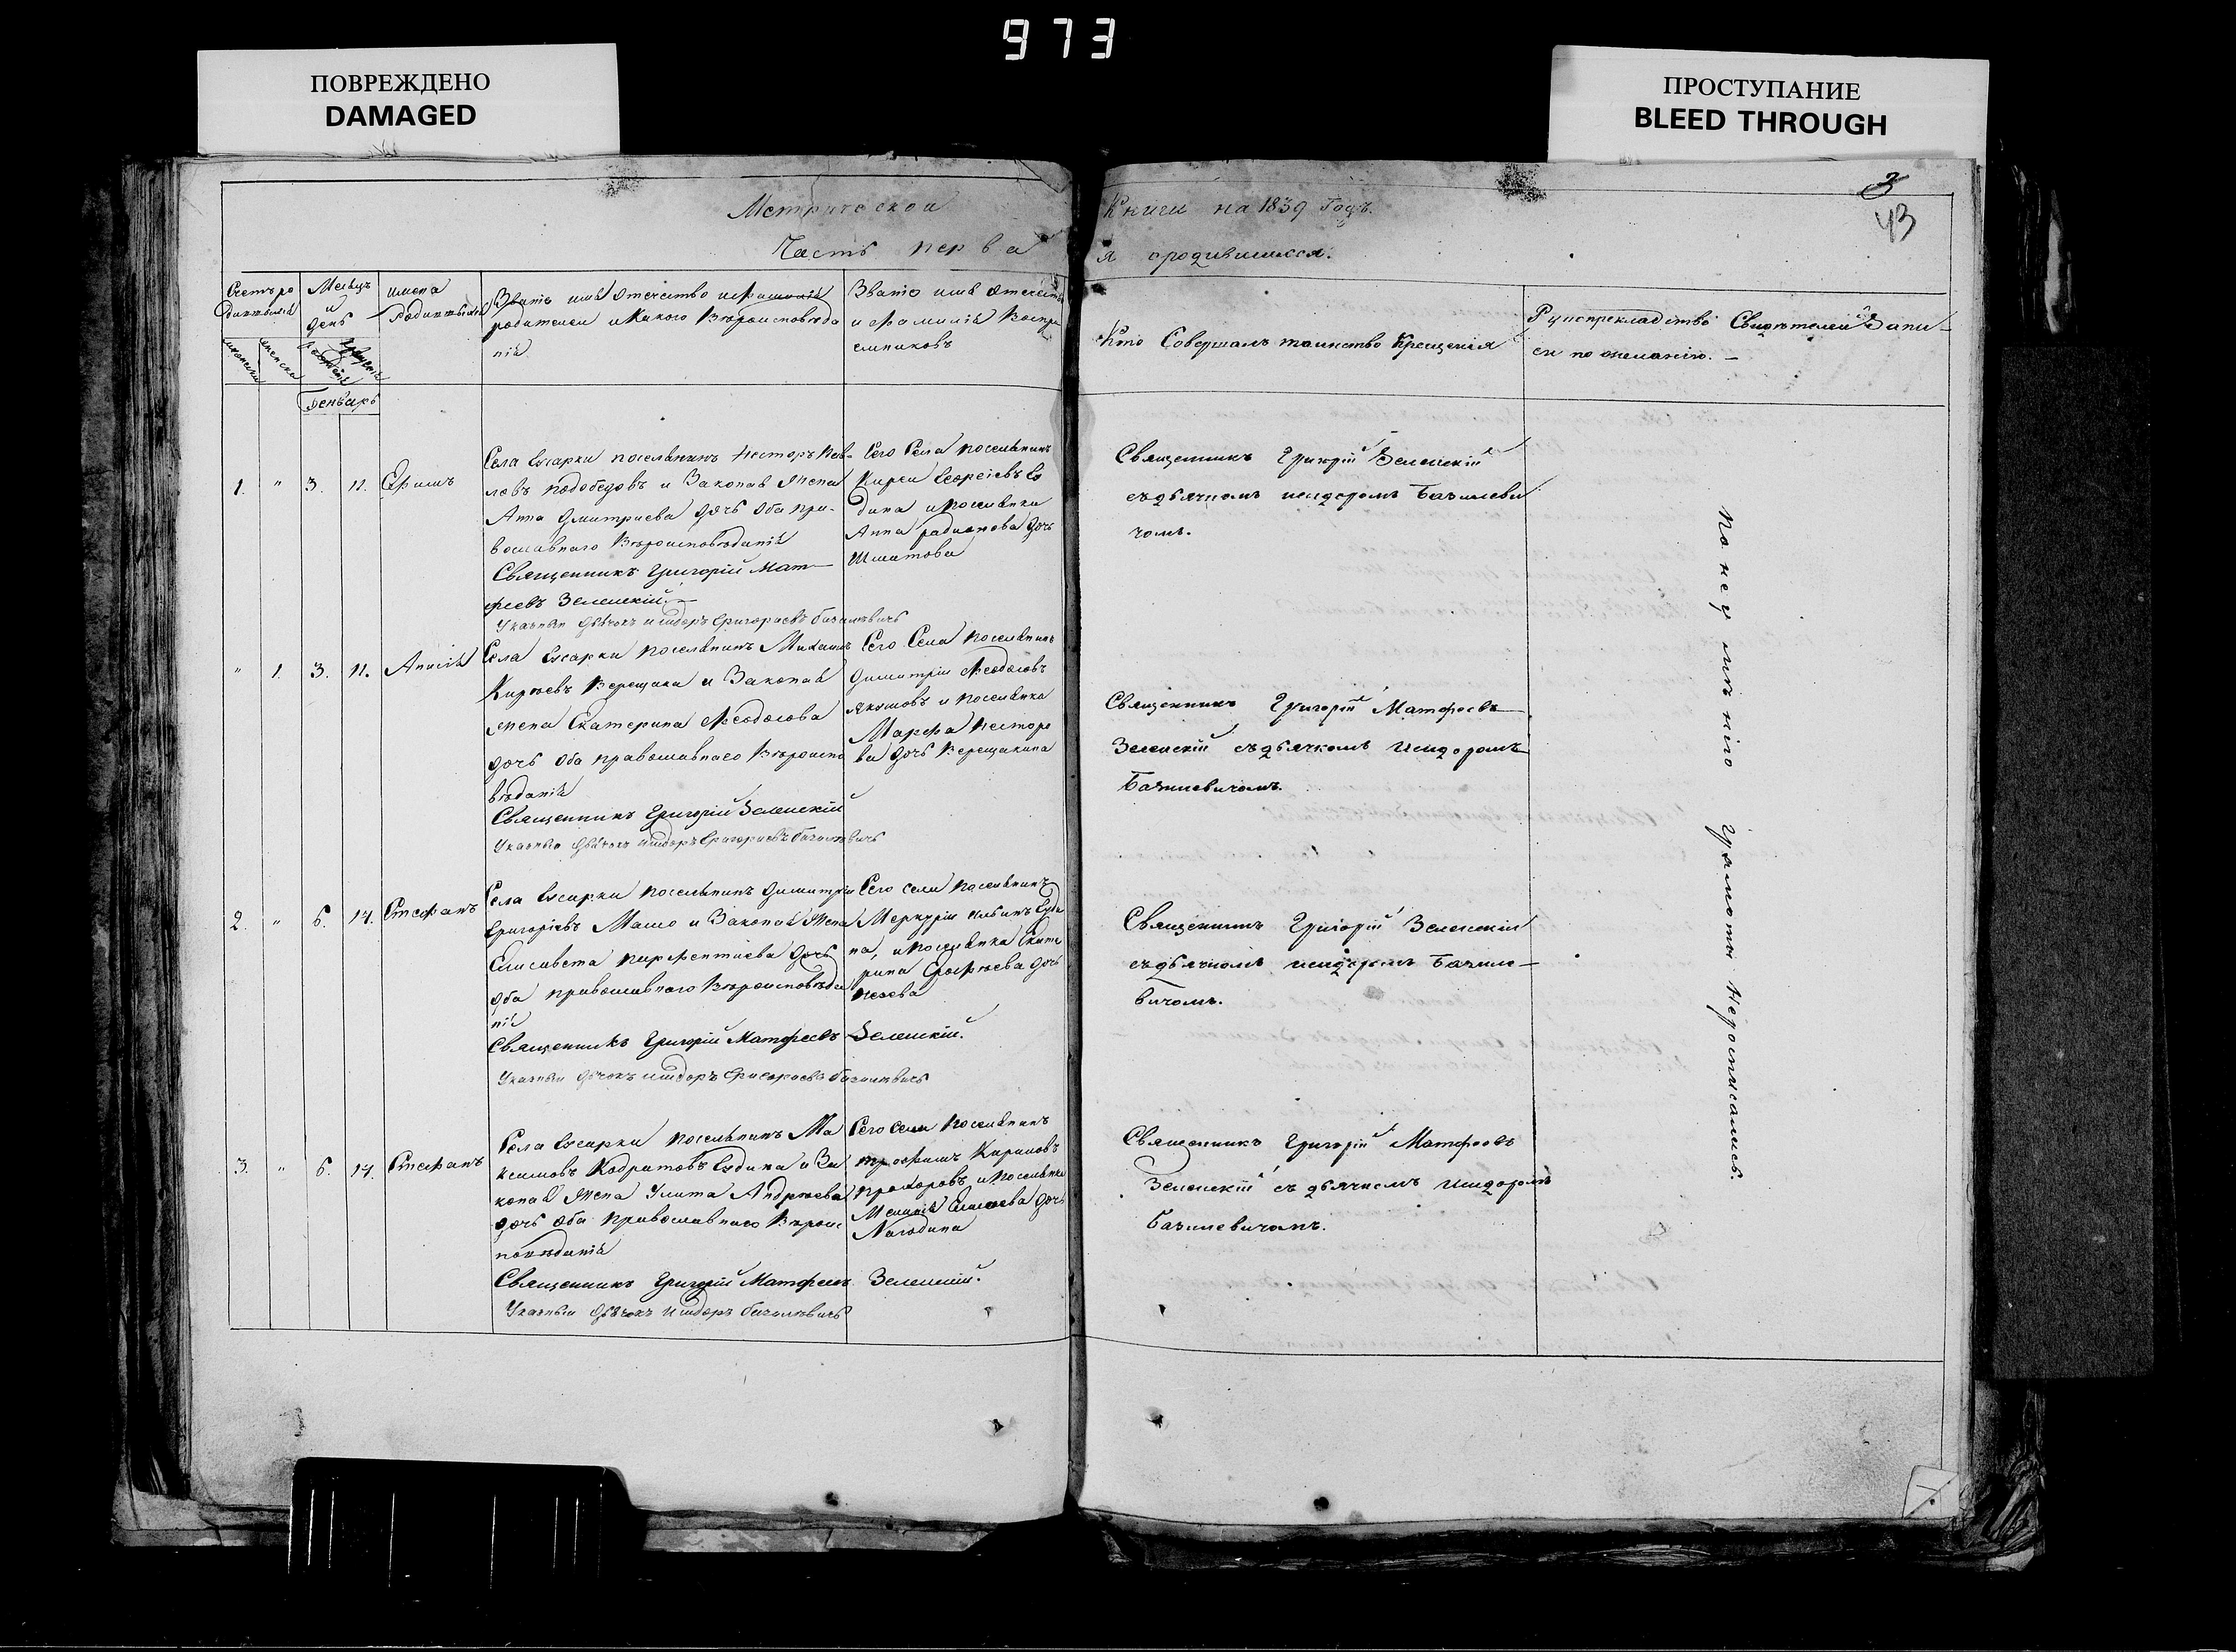 973
ПОВРЕЖДЕНО
DAMAGED
ПРОСТУПАНИЕ
BLEED THROUGH
3
43
Метрической
Книги на 1839 Годъ.
Часть перва
я ородившихся.
Месяцъ
и
день
имена
Званіе имя Отечество иФамилія
родителей иКакого Вѣроисповѣда
нія
Званіе имя Отечест
и Фамилія Воспри
емниковъ
Кто Совершалъ таинство Крещенія
Свидѣтелей Запи-
си по желанію.
Генварь
1. " 3. 11. Ефимъ
Села Ексарки поселянинъ Несторъ Пав-
ловъ Подобедовъ и Законая Жена
Анна Дмитриева дочь Оба пра-
вославнаго Вѣроисповѣданія
Священникъ Григорій Мат-
феевъ Зеленскій
Указный дьячокъ исидоръ Григориевъ базилевичь
Сего Села поселянинъ
дина и поселянки
Анна радионова дочь
Шматова
Священникъ Григорій Зеленскій
съдьячкомъ исидоромъ Базилеви
чомъ.
" 1. 3. 11. Анисія
Села Ексарки поселянинъ Михаилъ
Кирѣевъ Верещака и Законая
жена Екатерина Феодосова
дочь Оба православнаго Вѣроиспо
вѣданія
Священникъ Григорій Зеленскій
Указный дьячокъ исидоръ Григориевъ базилевичь
Сего Села поселянинъ
Димитрій Феодосовъ
Якимовъ и поселянка
Марфа Несторо
ва дочь Верещакина
Священникъ Григорій Матфеевъ
Зеленскій съдьячкомъ Исидоромъ
Базилевичомъ.
2. " 6. 14. Стефанъ
Села Ексарки поселянинъ Димитрій
Григоріевъ Машо и Законая Жена
Елисавета парфентиева дочь
Оба православнаго Вѣроисповѣда
нія
Священникъ Григорій Матфеевъ Зеленскій.
Указный дьячокъ исидоръ Григориевъ базилевичь
Сего села поселянинъ
Меркурій
на, и поселянка Екате
рина дочь
Священникъ Григорій Зеленскій
съдьячкомъ исидоромъ Базиле-
вичомъ.
3. " 6. 14. Стефанъ
Села Ексарки поселянинъ Ма
ксимовъ Кодратовъ Ев­дина и За
коная Жена Улита Андреева
дочь Оба православнаго Вѣроис
повѣданія
Священникъ Григорій Матфеевъ Зеленскій.
Указный дьячокъ Исидоръ базилевичь
Сего села поселянинъ
трофимъ Кириловъ
прохоровъ и поселянка
дочь
Священникъ Григорій Матфеевъ
Зеленскій съ дьячкомъ Исидоромъ
Базилевичомъ.
По неумѣнію грамоты Неросписались.